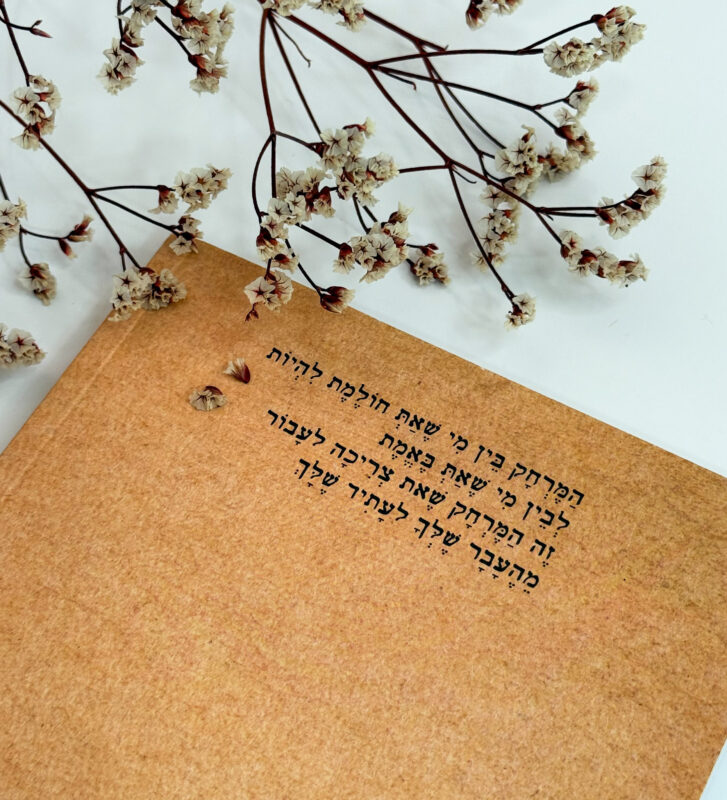 הַמֶּרְחָק בֵּין מִי שֶׁאַתְּ חוֹלֶמֶת לִהְיוֹת
לְבֵין מִי שֶׁאַתְּ בֶּאֱמֶת
זֶה הַמֶּרְחָק שֶׁאַת צְרִיכָה לַעֲבוֹר
מֵהֶעָבָר שֶׁלְּךָ לֶעָתִיד שֶׁלָּךְ